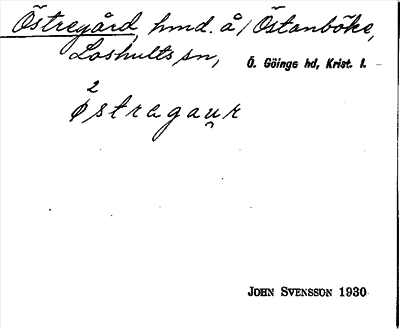 Östregård, hmd. å/Östanböke,
Loshults sn, Ö. Göinge hd, Krist. l.
2
østragau̯r
JOHN SVENSSON 1930